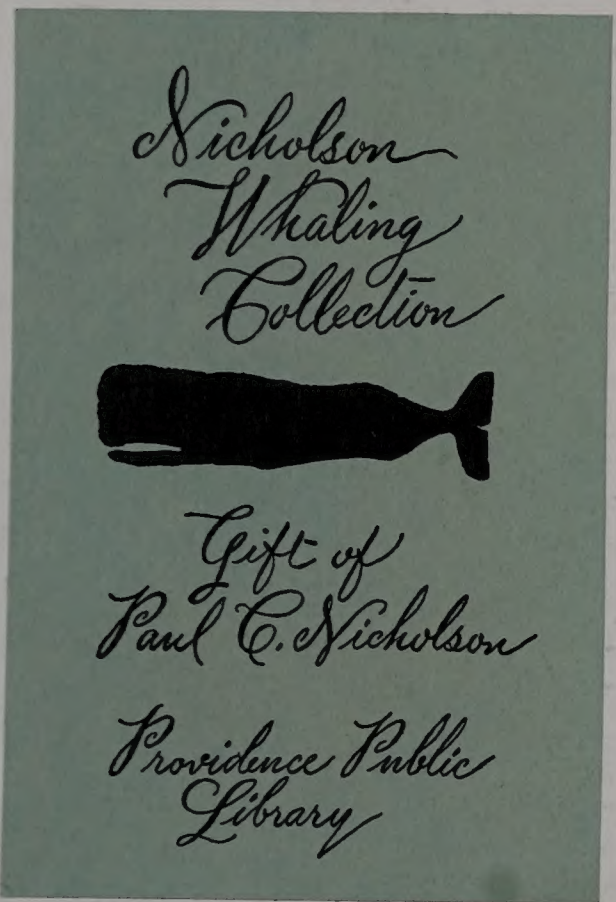 Nicholson
Whaling
Collection
Gift of
Paul C. Nicholson
Providence Public
Library